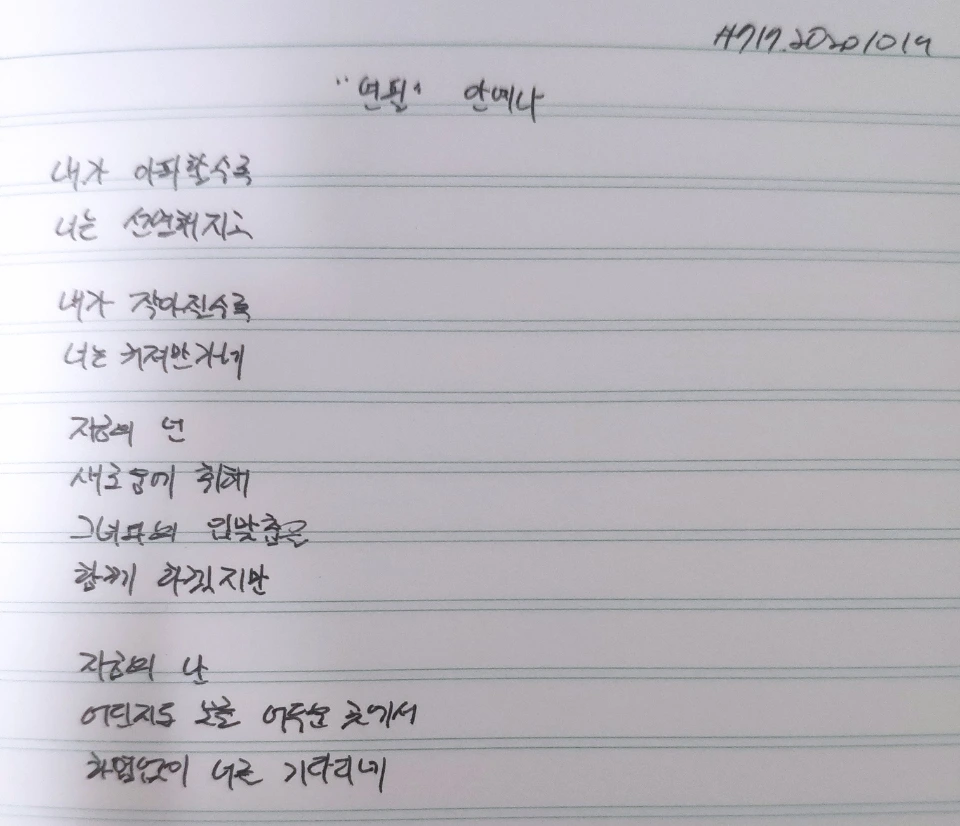 #717.20201019
"연필" 안예나
내가 아파할수록
너는 선연해지고
내가 작아질수록
너는 커져만가네
지금의 넌
새로움에 취해
그녀와의 입맞춤을
함께 하겠지만
지금의 난
어딘지도 모를 어두운 곳에서
하염없이 너를 기다리네